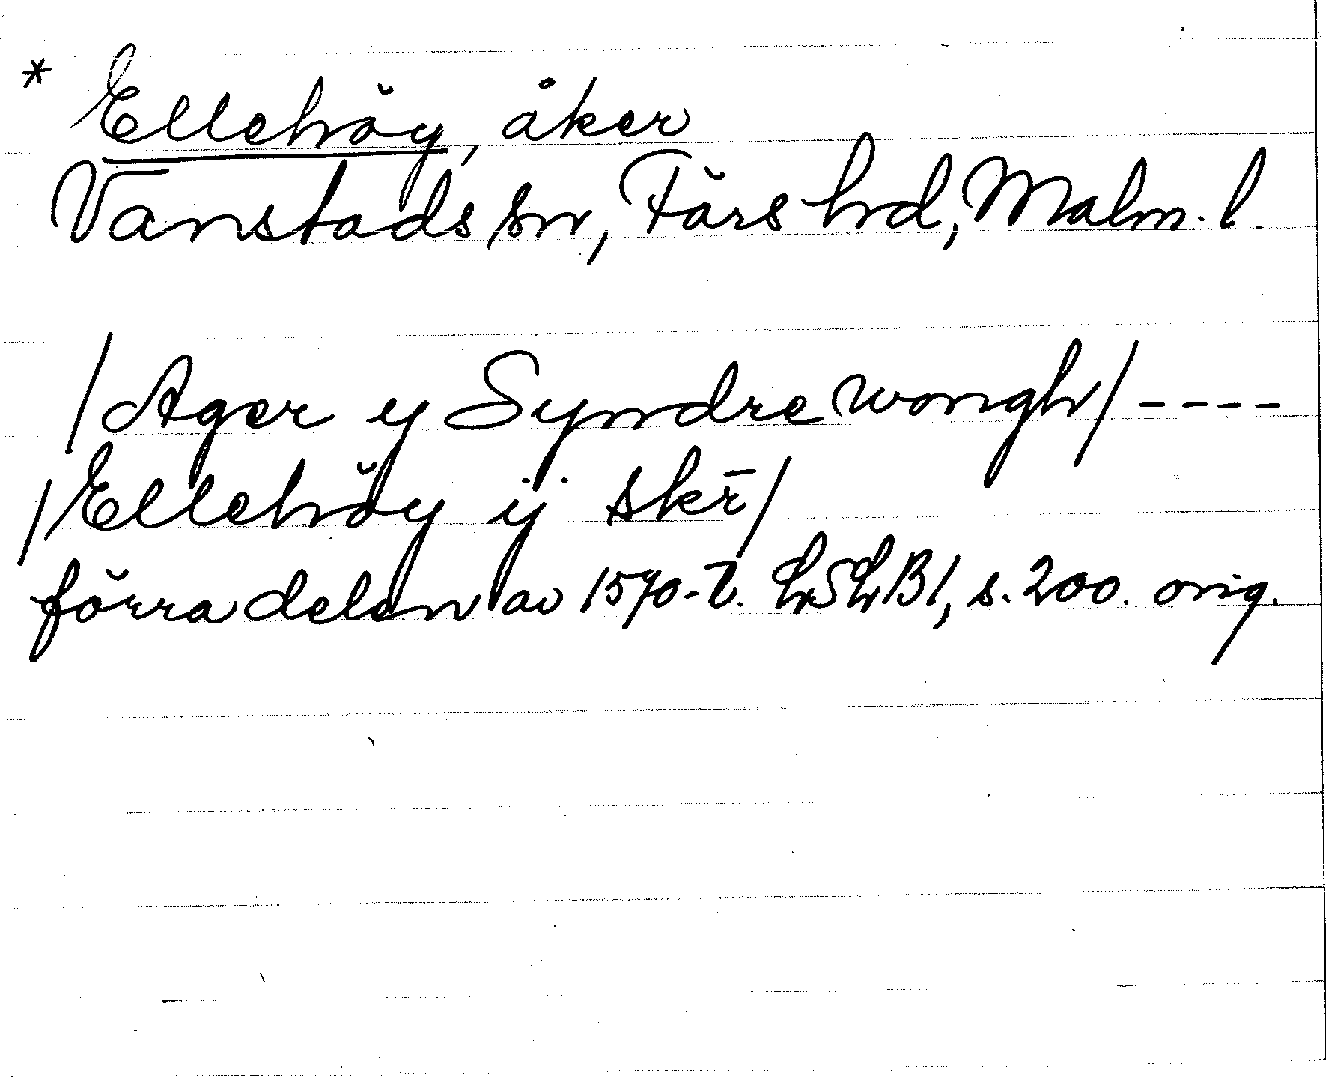 * Ellehöy, åker
Vanstads sn, Färs hd, Malm. l.
/Ager y Syndre wongh/ ----
/Ellehöy ij skr̄/
förra delen av 1570-t. LSLB1, s. 200. orig.